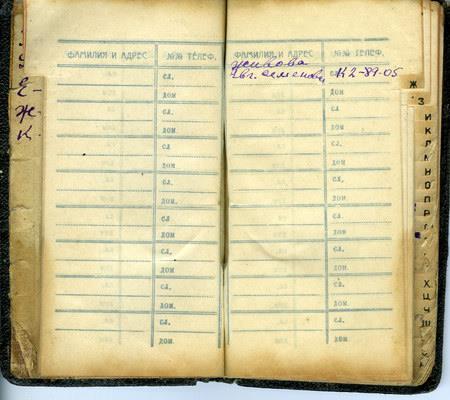 Е-
Ж-
К.
ФАМИЛИЯ И АДРЕС №№ ТЕЛЕФ.
СЛ.
ДОМ.
СЛ.
ДОМ.
СЛ.
ДОМ.
СЛ.
ДОМ.
СЛ.
ДОМ.
СЛ.
ДОМ.
СЛ.
ДОМ.
СЛ.
ДОМ.
ФАМИЛИЯ И АДРЕС №№ ТЕЛЕФ.
Жикова
СЛ. К 2-89-05
ДОМ.
СЛ.
ДОМ.
СЛ.
ДОМ.
СЛ.
ДОМ.
СЛ.
ДОМ.
СЛ.
ДОМ.
СЛ.
ДОМ.
СЛ.
ДОМ.
Ж
З
И
К
Л
М
Н
О
П
Р
Х
Ц
Ч
Ш